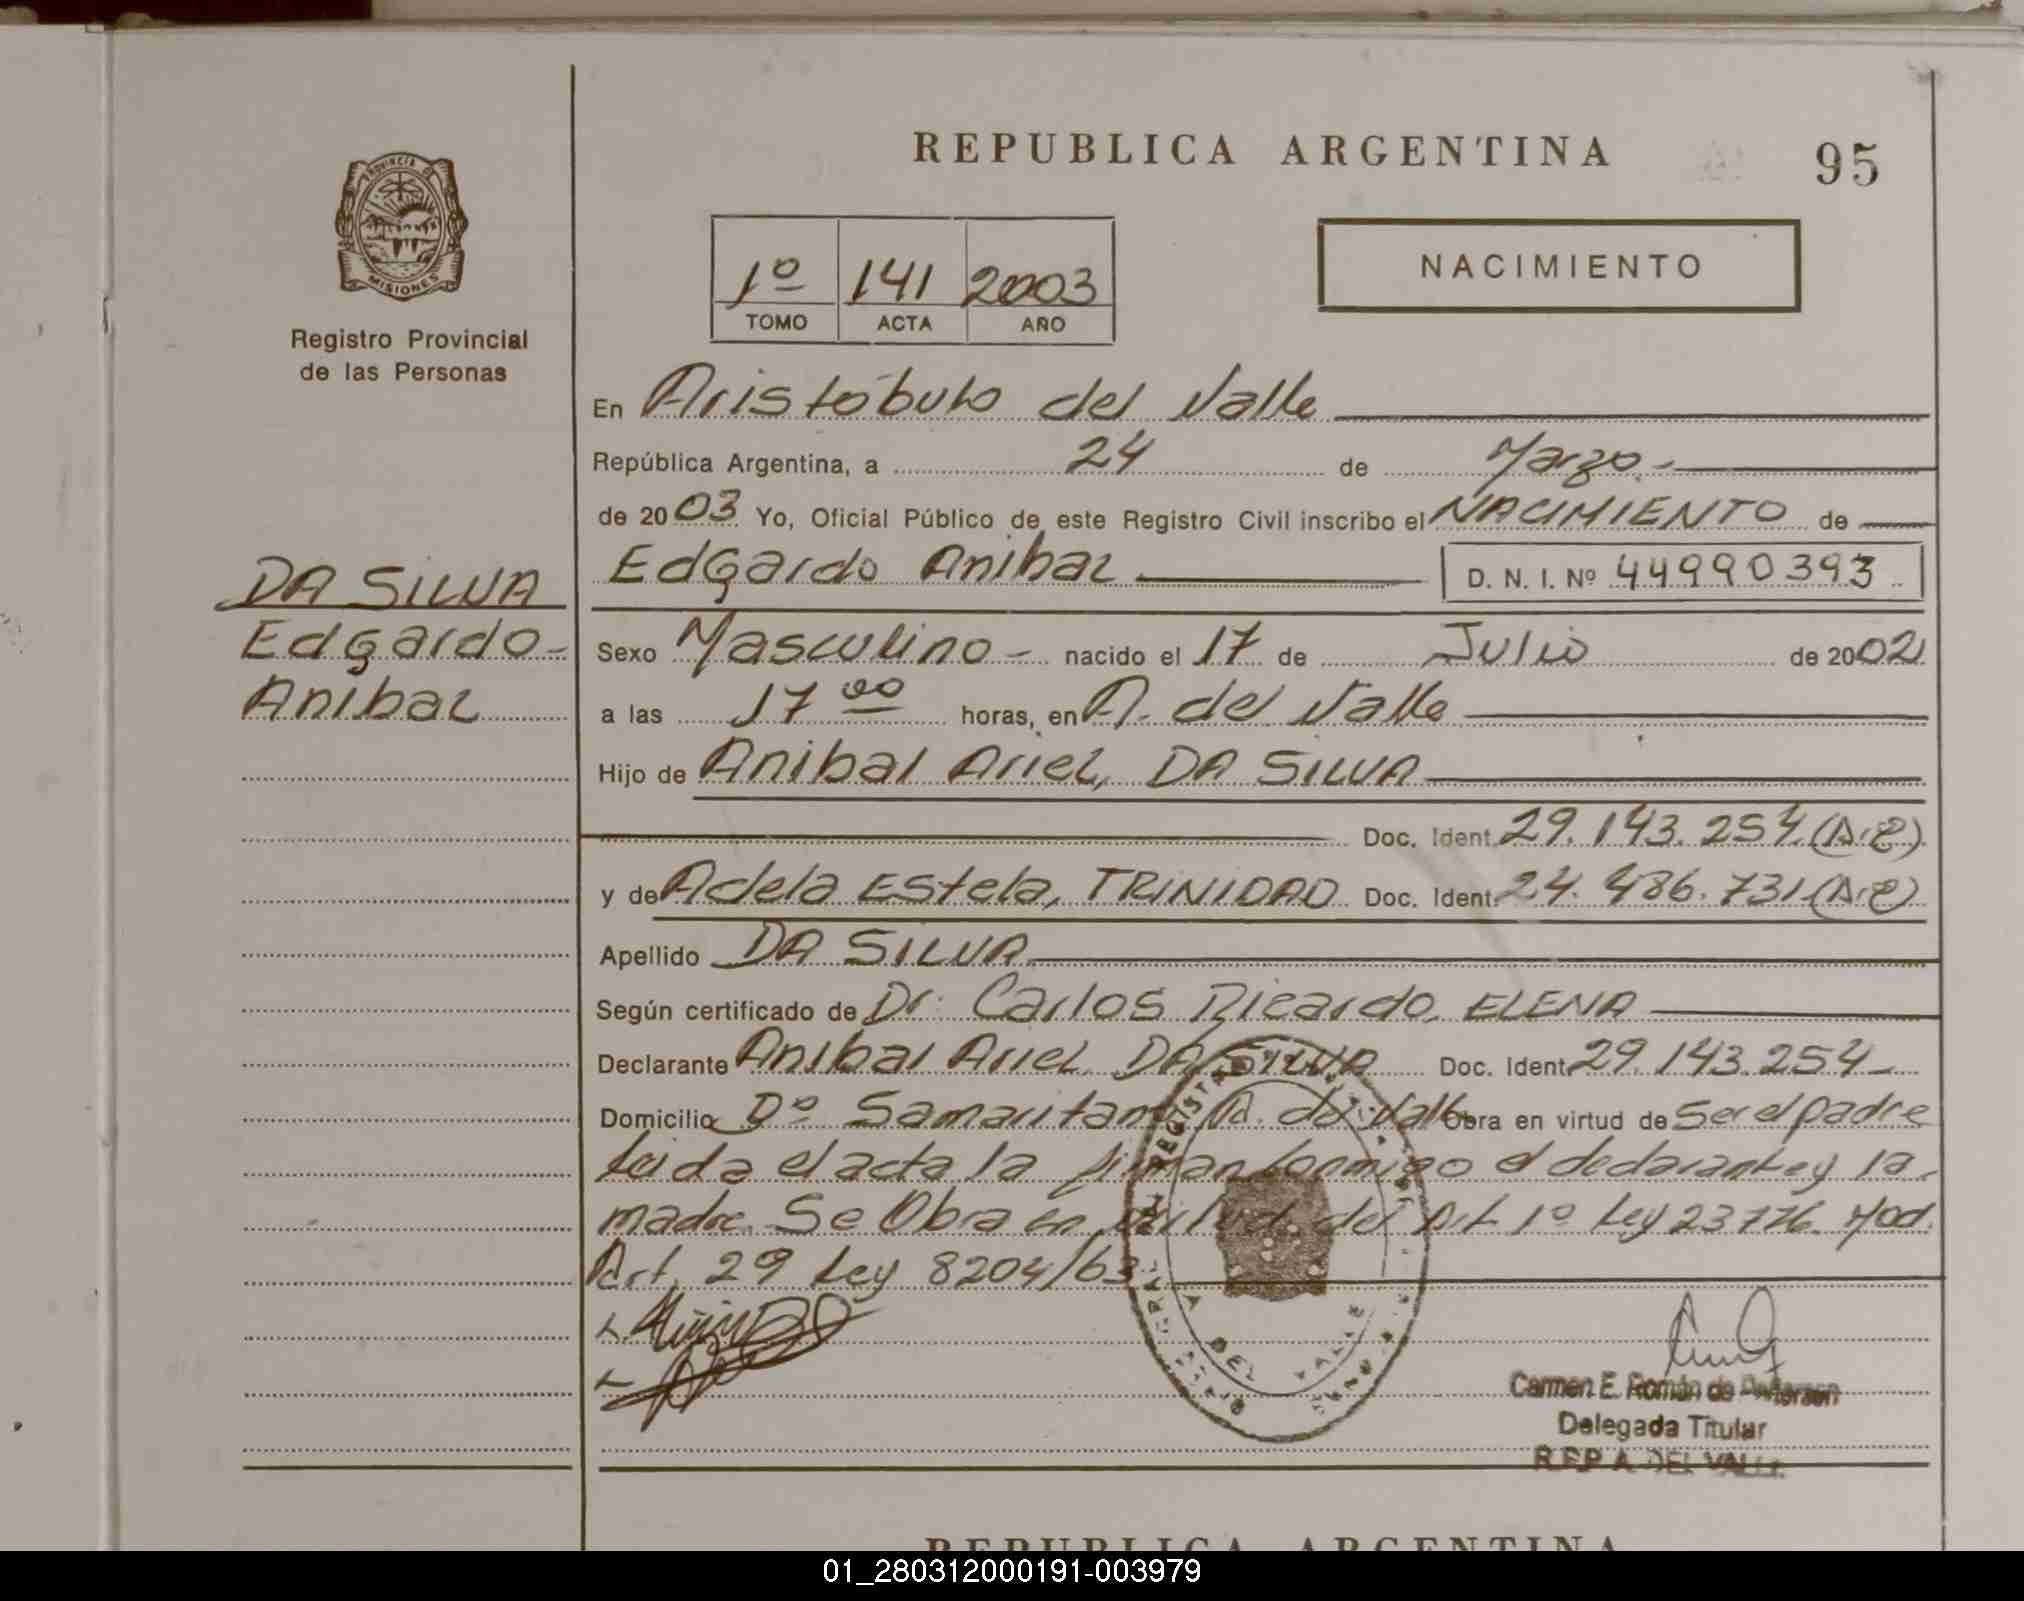 REPUBLICA ARGENTINA
95
PROVINCIA DE
MISIONES
Registro Provincial
de las Personas
1º 141 2003
TOMO ACTA AÑO
NACIMIENTO
En Aristóbulo del Valle
República Argentina, a 24 de Marzo.-
de 2003 Yo, Oficial Público de este Registro Civil inscribo el NACIMIENTO de
Edgardo Anibal D. N. I. Nº 44990393
DA SILVA
Edgardo-
Anibal
Sexo Masculino- nacido el 17 de Julio de 2002
a las 17 00 horas, en A. del Valle
Hijo de Anibal Ariel, DA SILVA
Doc. Ident. 29.143.254
y de Adela Estela, TRINIDAD Doc. Ident. 24.486.731
Apellido DA SILVA
Según certificado de Dr. Carlos Ricardo, ELENA
Declarante Anibal Ariel DA SILVA Doc. Ident. 29.143.254-
Domicilio Bº Samaritano A. del Valle Obra en virtud de Ser el padre
Leida el acta la firman conmigo el declarante y la
madre. Se Obra en virtud del Art 1º Ley 23776. Mod.
Art. 29 Ley 8204/63
Carmen E. Román de
Delegada Titular
R.P.P A. DEL VALLE
REPUBLICA ARGENTINA
01_280312000191-003979